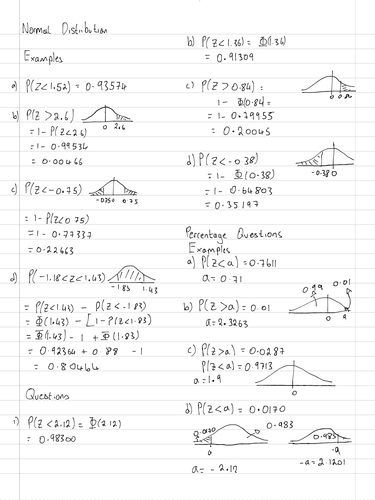 Normal Distribution
Examples
a) P(Z<1.52) = 0.93574
b) P(Z >2.6)
0 2.6
= 1- P(Z<2.6)
= 1- 0.99534
= 0.00466
c) P(Z<-0.75)
-0.75 0 0.75
= 1- P(Z<0.75)
= 1- 0.77337
= 0.22663
d) P(-1.18<Z<1.43)
-1.83 1.43
= P(Z<1.43) - P(Z<-1.83)
= Φ(1.43) - [1-P(Z<1.83)
= Φ(1.43) - 1 + Φ(1.83)
= 0.92364 + 0.88 -1
= 0.80464
Questions
1) P(Z<2.12) = Φ(2.12)
= 0.98300
b) P(Z<1.36) = Φ(1.36)
= 0.91309
c) P(Z >0.84) =
0 0.84
1- Φ(0.84)=
= 1- 0.79955
= 0.20045
d) P(Z<-0.38)
-0.38 0
= 1- Φ(0.38)
= 1- 0.64803
= 0.35197
Percentage Questions
Examples
a) P(Z<a) = 0.7611
a = 0.71
0.99 0.01
b) P(Z >a) = 0.01
0 a
a = 2.3263
c) P(Z>a) = 0.0287
P(Z<a) = 0.9713
a = 1.9
0
d) P(Z<a) = 0.0170
0.0170 0.983
0.983
a
-a
a = - 2.12
-a = 2.1201